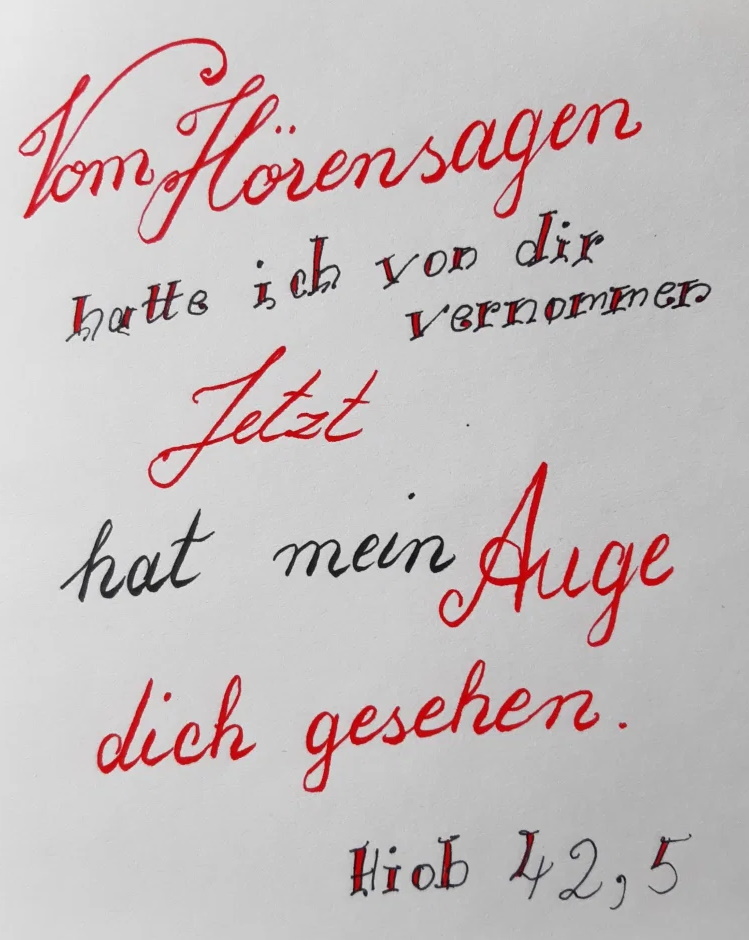 Vom Hörensagen
hatte ich von dir
vernommen
Jetzt
hat mein Auge
dich gesehen.
Hiob 42,5